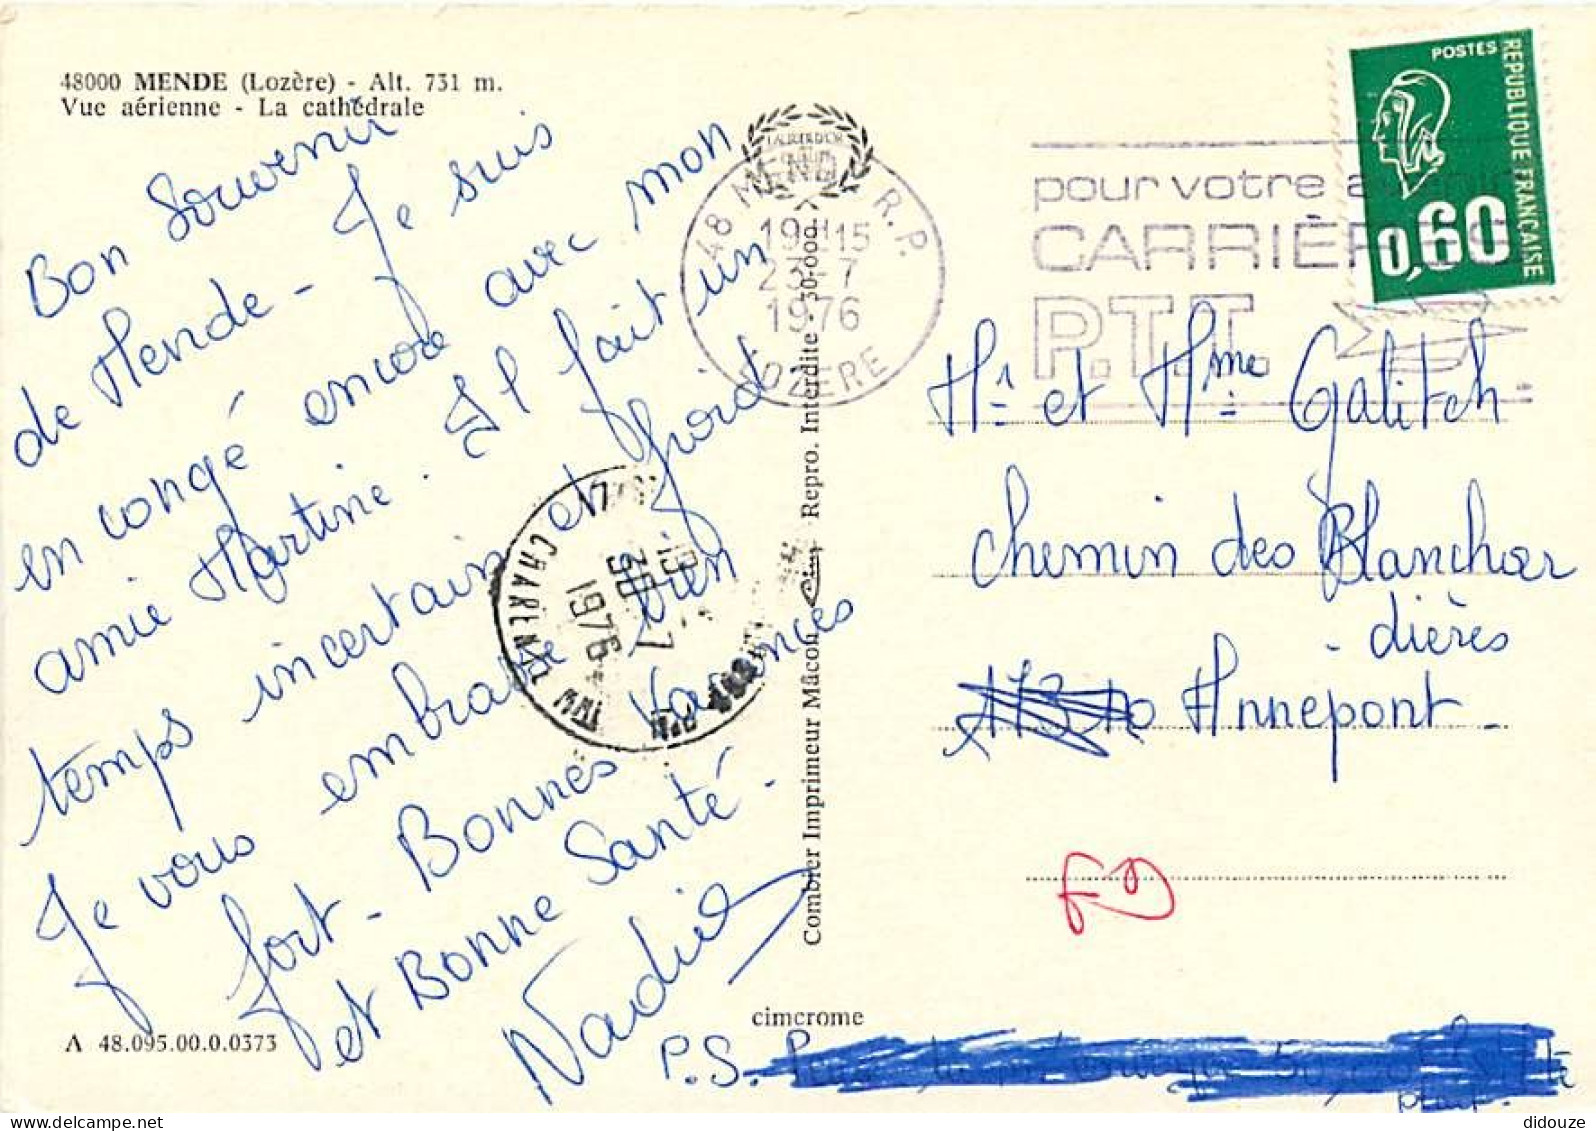 48000 MENDE (Lozère) - Alt. 731 m.
Vue aérienne - La cathédrale
Bon Souvenir
de Mende - Je suis
en congé encore avec mon
amie Martine. Il fait un
temps incertain et froid
Je vous embrasse bien
fort - Bonnes Vacances
et Bonne Santé -
Nadia
A 48.095.00.0.0373
48 MENDE R.P.
19H15
23-7
1976
LOZERE
pour votre
CARRIÈRES
P.T.T.
POSTES
REPUBLIQUE FRANÇAISE
0,60
CHARENTE
19
30-7
1976
Combier Imprimeur Mâcon
Repro. Interdite - 30-000
Mr et Mme Galitch
Chemin des Blanchar
- dières
Annepont
cimcrome
P.S.
plait.
didouze